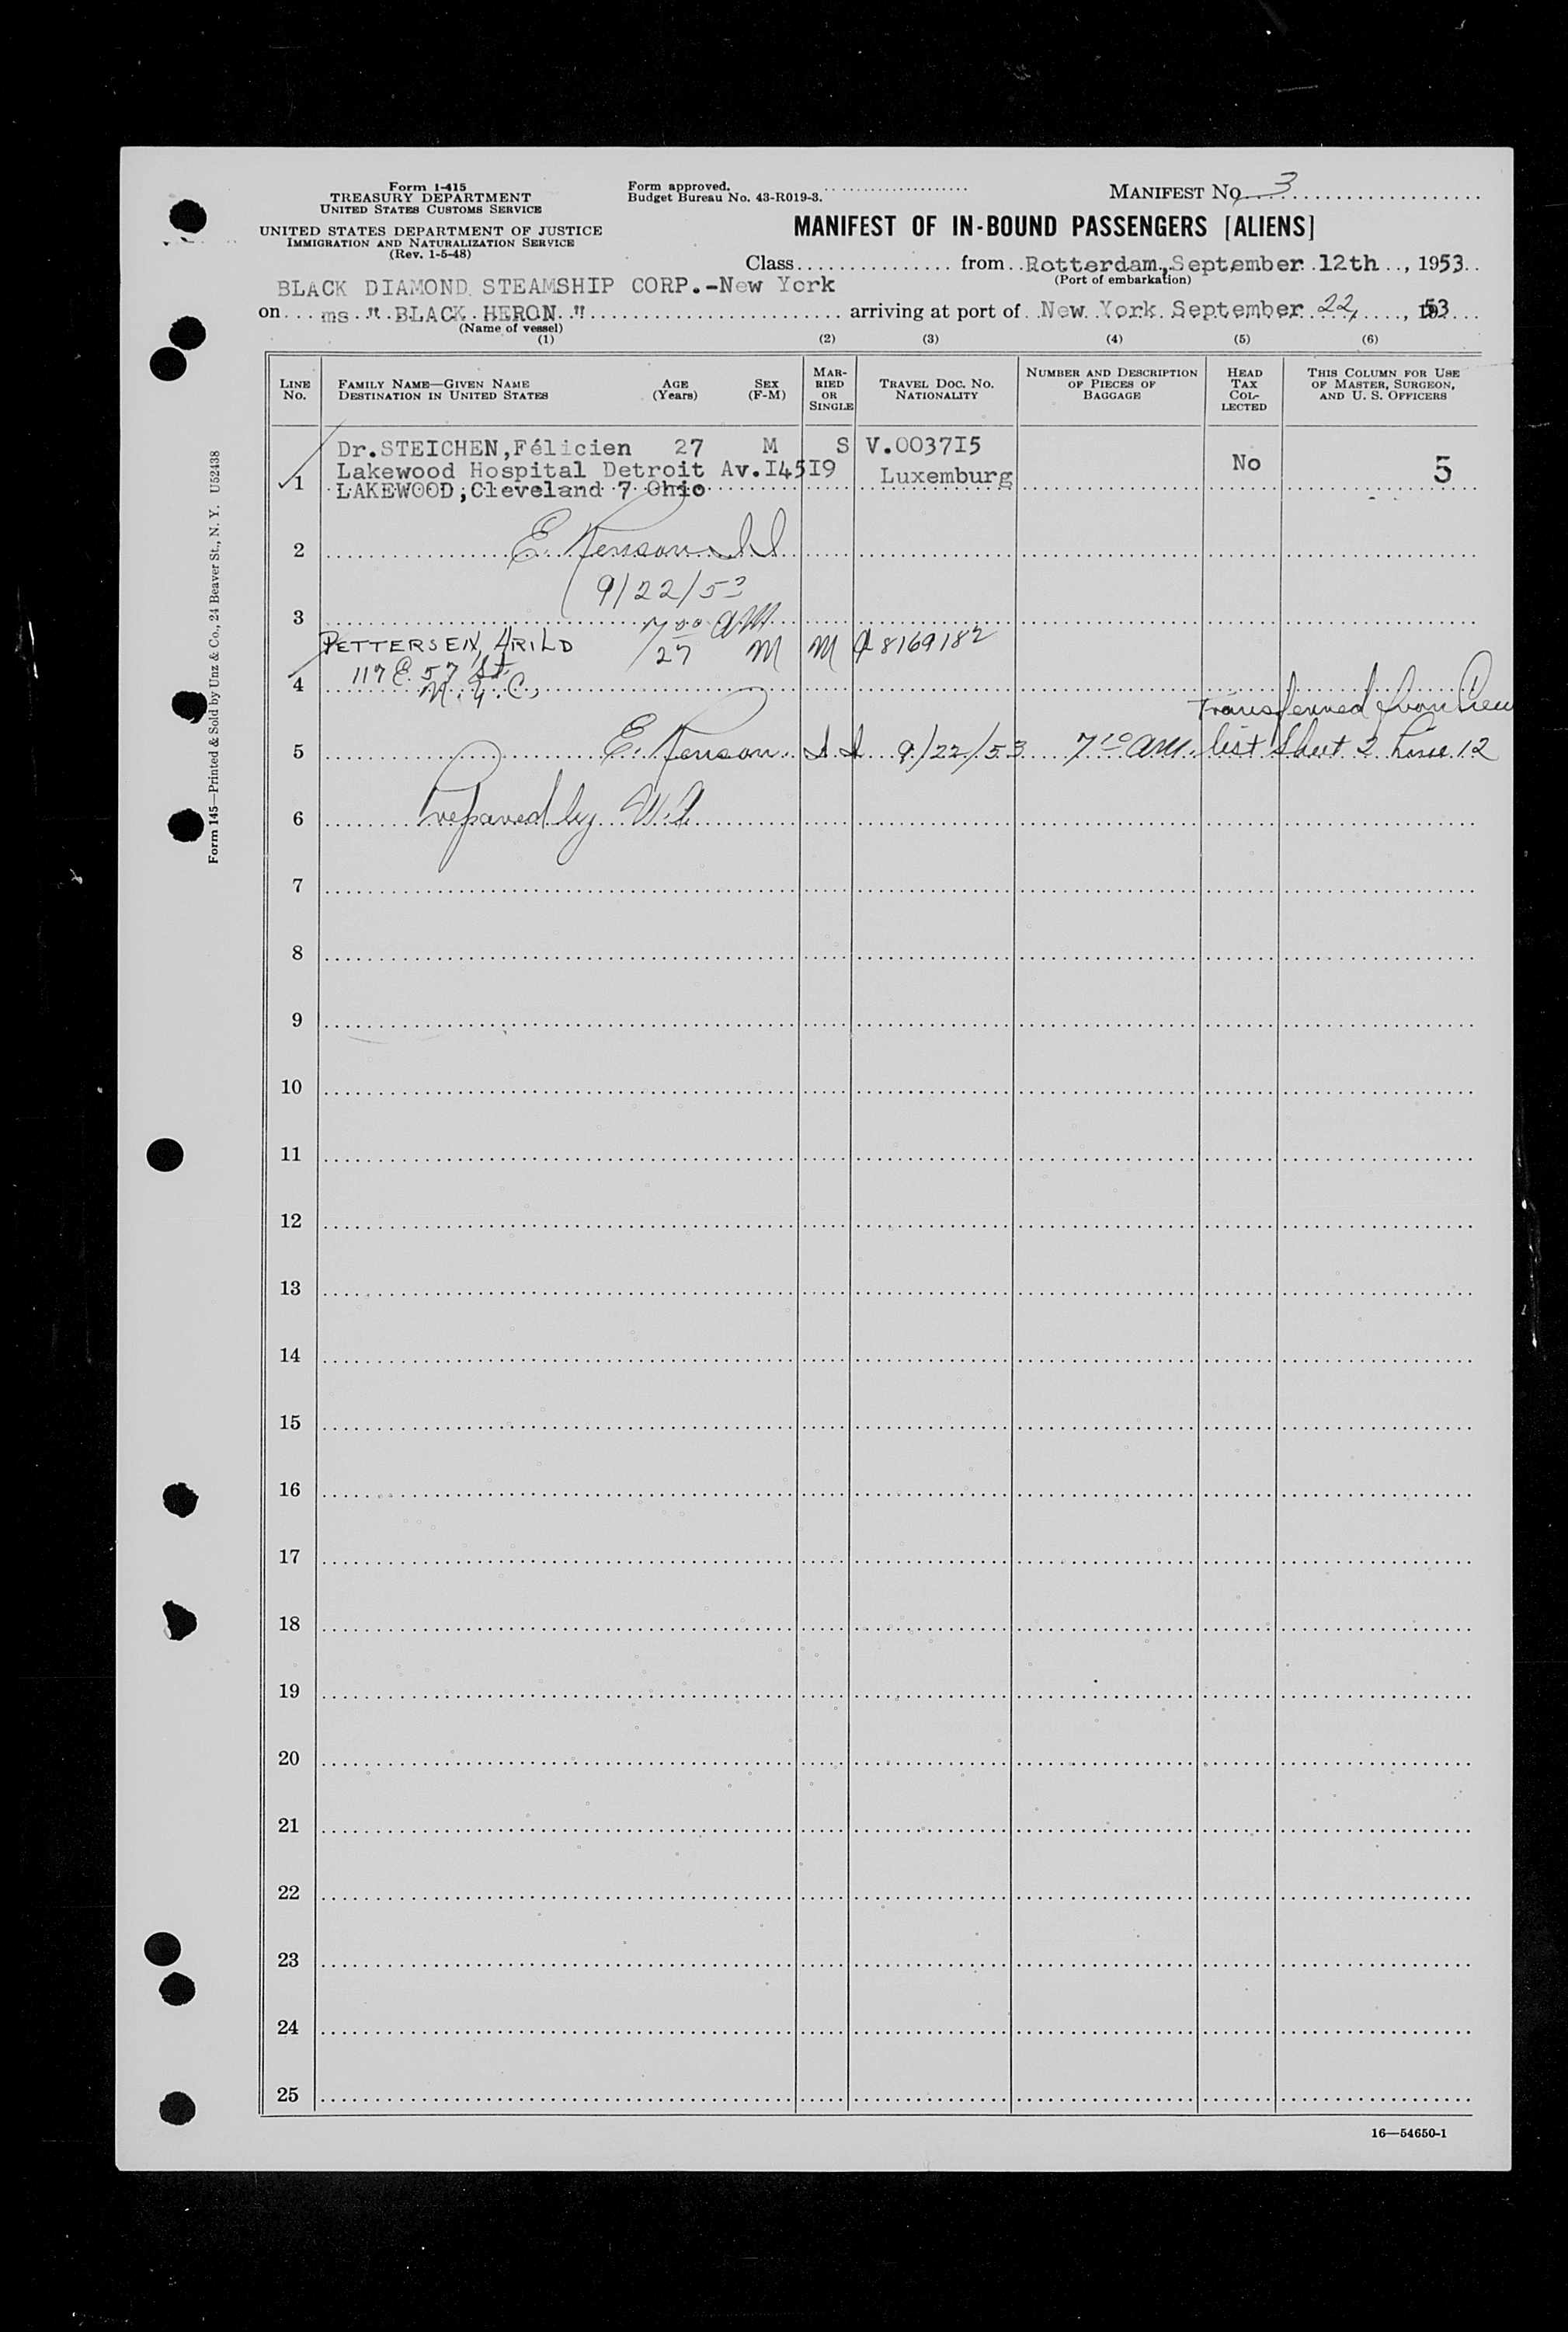 Form I-415
TREASURY DEPARTMENT
UNITED STATES CUSTOMS SERVICE
UNITED STATES DEPARTMENT OF JUSTICE
IMMIGRATION AND NATURALIZATION SERVICE
(Rev. 1-5-48)
Form approved.
Budget Bureau No. 43-R019-3.
MANIFEST No. 3
MANIFEST OF IN-BOUND PASSENGERS [ALIENS]
Class from Rotterdam, September 12th, 1953
(Port of embarkation)
BLACK DIAMOND STEAMSHIP CORP.-New York
on ms " BLACK HERON " arriving at port of New York September 22, 1953
(Name of vessel)
(1) (2) (3) (4) (5) (6)
LINE No. FAMILY NAME—GIVEN NAME DESTINATION IN UNITED STATES AGE (Years) SEX (F-M) MARRIED OR SINGLE TRAVEL DOC. NO. NATIONALITY NUMBER AND DESCRIPTION OF PIECES OF BAGGAGE HEAD TAX COLLECTED THIS COLUMN FOR USE OF MASTER, SURGEON, AND U. S. OFFICERS
Dr.STEICHEN,Félicien 27 M S V.0037I5
Lakewood Hospital Detroit Av.I45I9 Luxemburg No 5
1 LAKEWOOD;Cleveland 7 Ohio
2 E. Renson I I
9/22/53
3 7 00 AM
PETTERSEN, ARILD 27 M M A 8169182
117 E. 57 St.
4 N. Y. C.
Transferred from Crew
5 E. Renson I I 9/22/53 7 10 AM. list Sheet 2 Line 12
6 Prepared by
7
8
9
10
11
12
13
14
15
16
17
18
19
20
21
22
23
24
25
16—54650-1
Form 145—Printed & Sold by Unz & Co., 24 Beaver St., N. Y. U52438